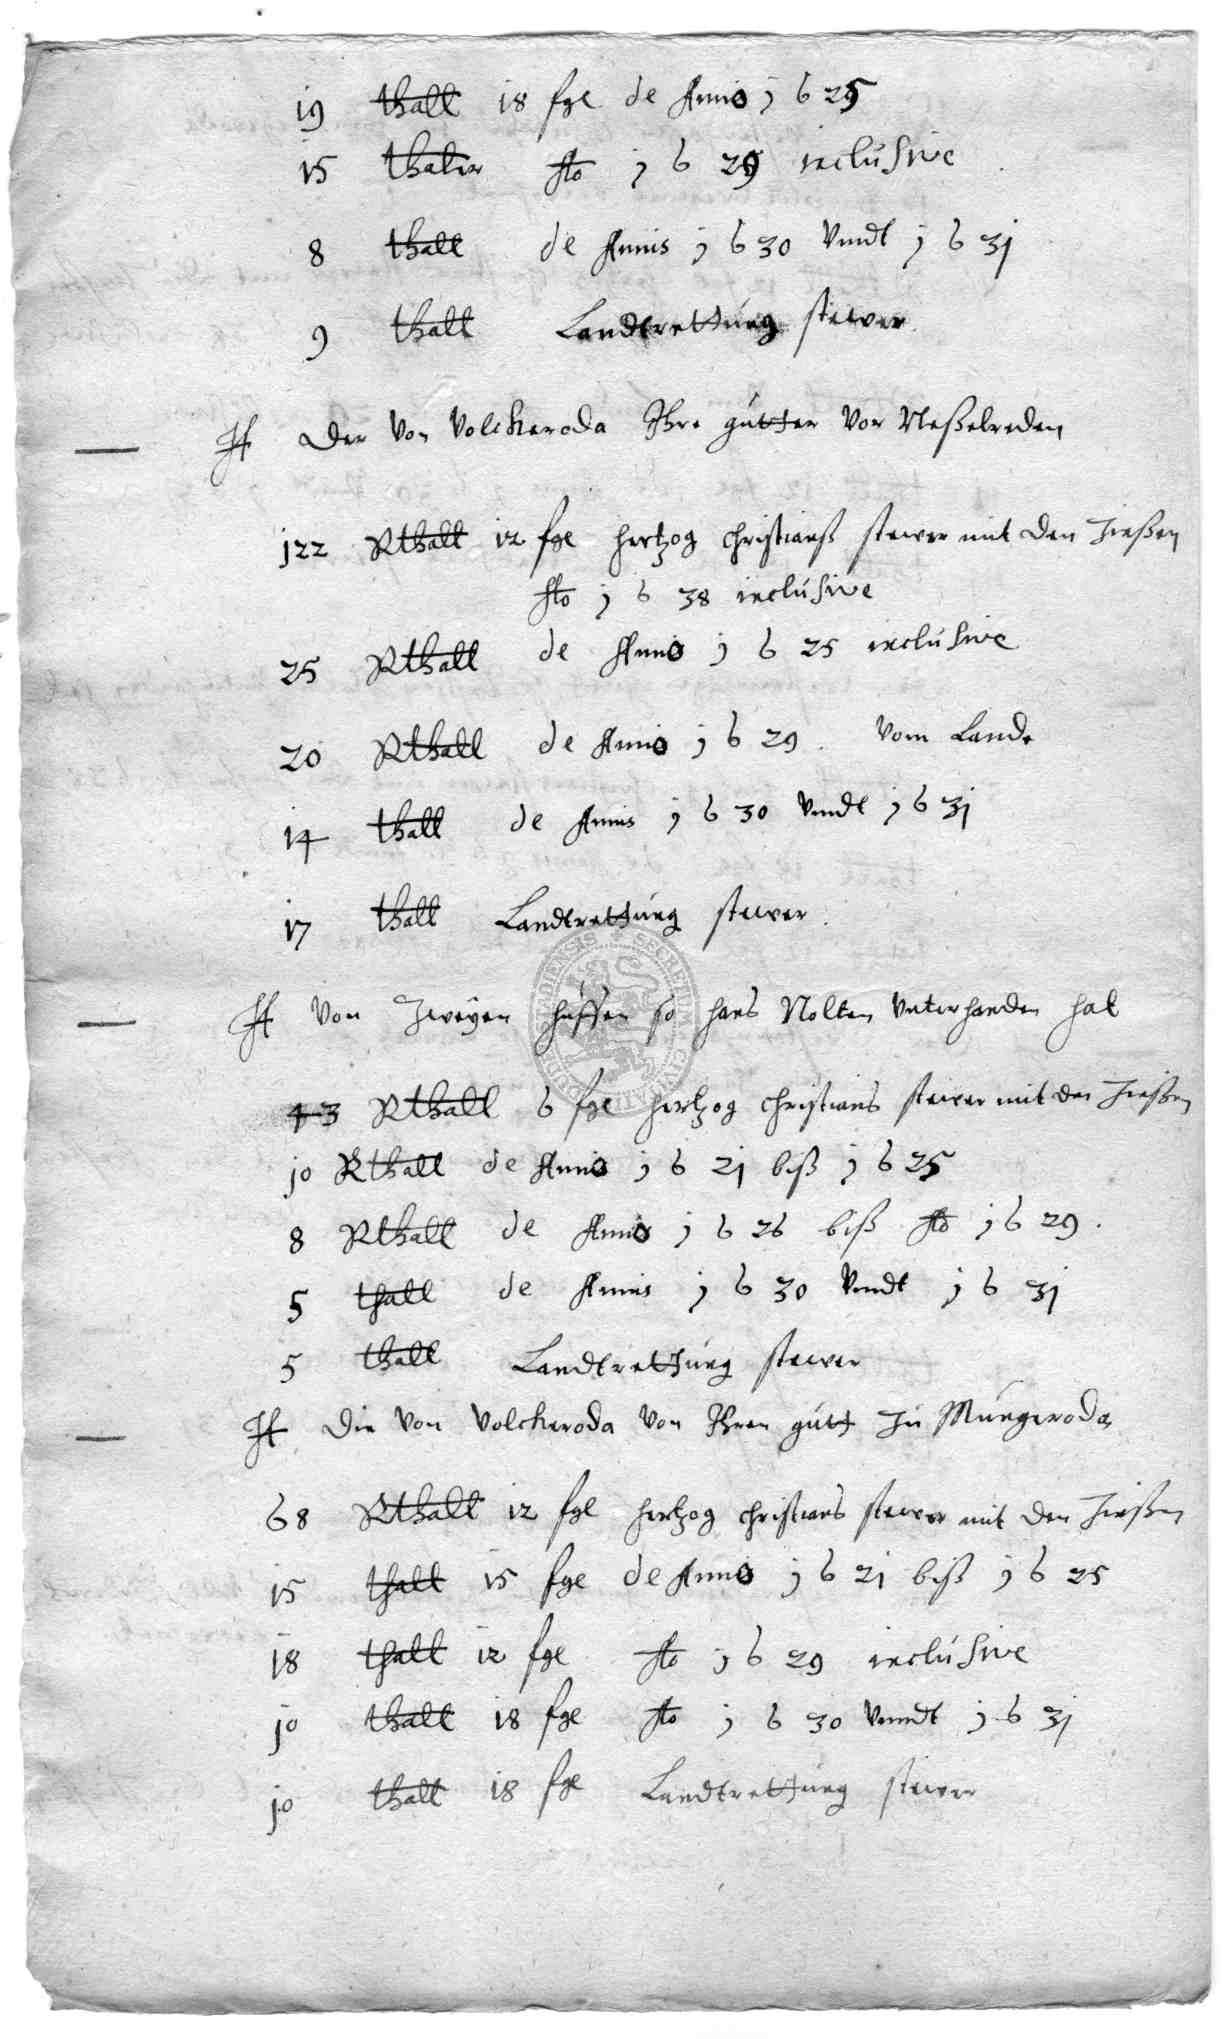 19 thall 18 sgl de Anno 1625
15 thaler Ao 1629 inclusive
8 thall de Annis 1630 Vnndt 1631
9 thall Landtrettung stewer
It Der von Volckeroda Ihre gütter vor Neßelreden
122 Rthall 12 sgl hertzog christianß stewer mit den Zinßen
Ao 1638 inclusive
25 Rthall de Anno 1625 inclusive
20 Rthall de Anno 1629. vom Lande
14 thall de Annis 1630 Vnndt 1631
17 thall Landtrettung stewer.
It Von Zweyen huffen so hans Nolten vnterhanden hat
43 Rthall 6 sgl hertzog christians stewer mit den Zinßen
10 Rthall de Anno 1621 biß 1625
8 Rthall de Anno 1626 biß Ao 1629.
5 thall de Annis 1630 Vnndt 1631
5 thall Landtrettung stewer
It Die von Volckeroda von Ihren gutt zu Müngeroda
68 Rthall 12 sgl hertzog christians stewer mit den Zinßen
15 thall 15 sgl de Anno 1621 biß 1625
18 thall 12 sgl Ao 1629 inclusive
10 thall 18 sgl Ao 1630 Vnndt 1631
10 thall 18 sgl Landtrettung stewer